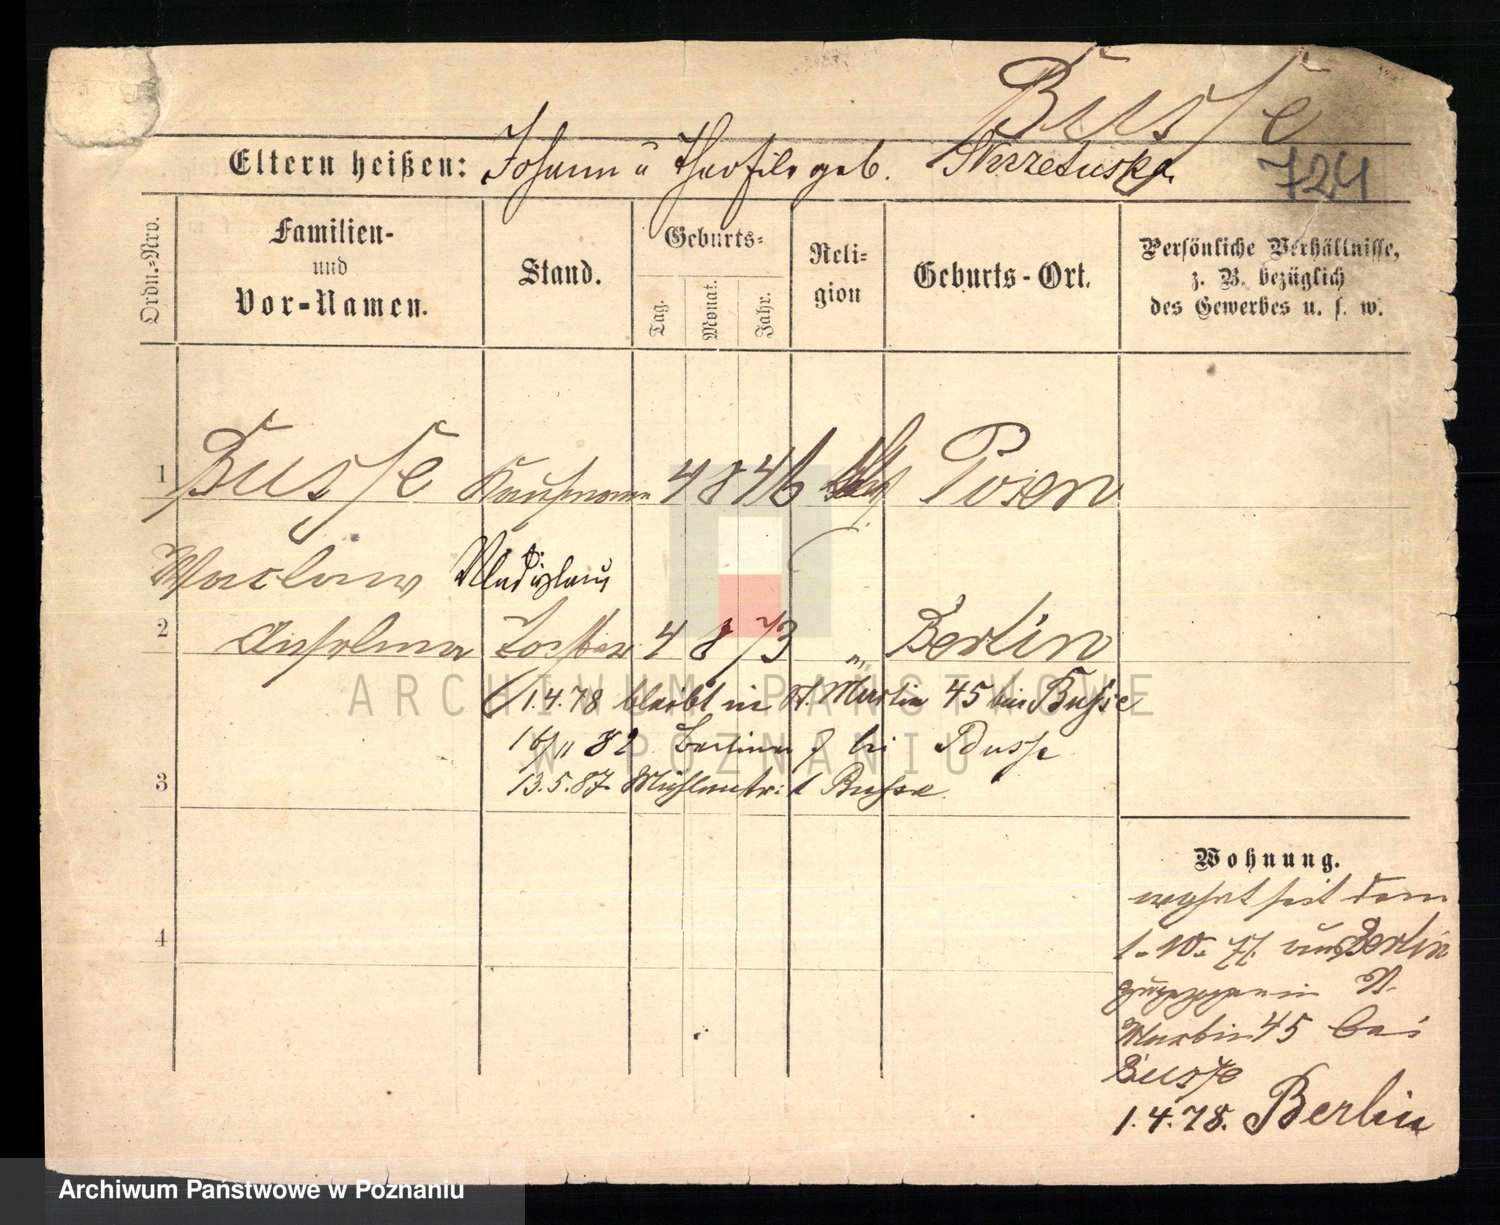 Busse
Eltern heißen: Johann u Theofile geb.
724
Ordn.-Nro.
Familien-
und
Vor-Namen.
Stand.
Geburts-
Tag.
Monat.
Jahr.
Reli-
gion
Geburts-Ort.
Persönliche Verhältnisse,
z. B. bezüglich
des Gewerbes u. s. w.
1 Busse Kaufmann 4 8 46 Posen
Waclaw Vladislaus
2 Anselma Tochter 4 8 73 " Berlin
1.4.78 bleibt in St. Martin 45 bei Busse
16/11 82 Berliner 7 bei Busse
3 13.5.87. Mühlenstr. 1 Busse
Wohnung.
wohnt seit dem
1. 10. 77. von Berlin
zugezogen in St.
Martin 45 bei
Busse
4
1.4.78. Berlin
ARCHIWUM PAŃSTWOWE
W POZNANIU
Archiwum Państwowe w Poznaniu